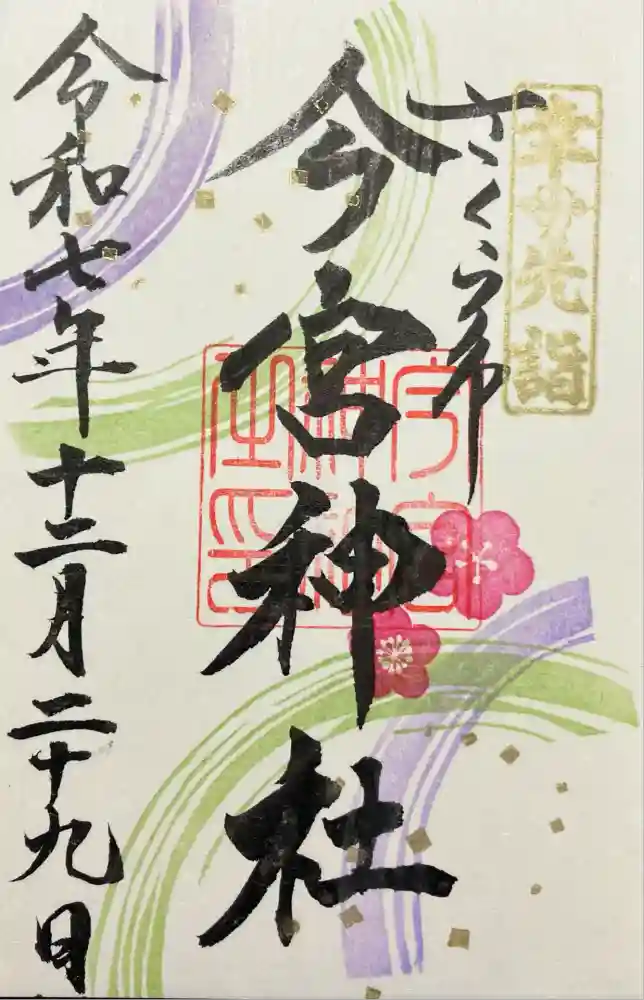 幸先詣
さくら市
今宮神社
今宮神社之印
令和七年十二月二十九日